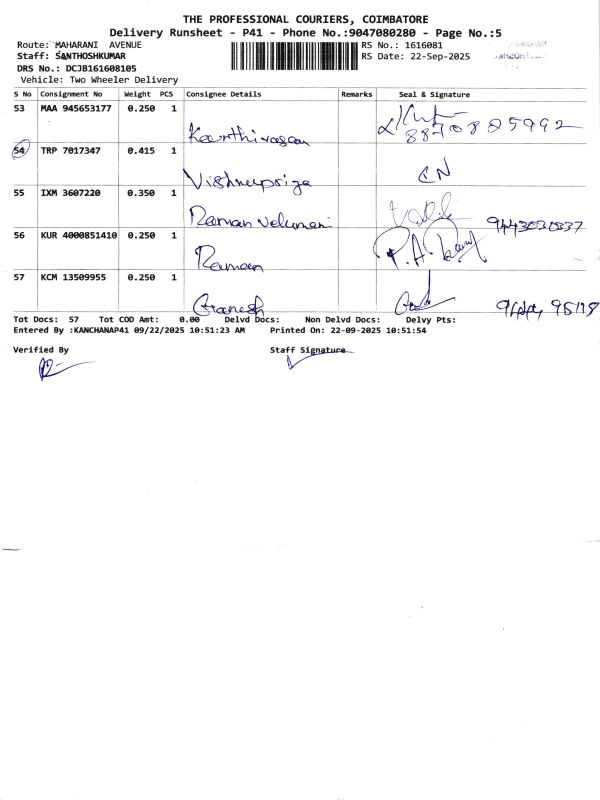 THE PROFESSIONAL COURIERS, COIMBATORE
Delivery Runsheet - P41 - Phone No.:9047080280 - Page No.:5
Route: MAHARANI AVENUE RS No.: 1616081
Staff: SANTHOSHKUMAR RS Date: 22-Sep-2025
DRS No.: DCJB161608105
Vehicle: Two Wheeler Delivery
S No Consignment No Weight PCS Consignee Details Remarks Seal & Signature
53 MAA 945653177 0.250 1
Keerthivasan 8870885992
54 TRP 7017347 0.415 1
Vishnupriya CN
55 IXM 3607220 0.350 1
Raman Velumani
56 KUR 4000851410 0.250 1
Raman P.A.
57 KCM 13509955 0.250 1
Ganesh
Tot Docs: 57 Tot COD Amt: 0.00 Delvd Docs: Non Delvd Docs: Delvy Pts:
Entered By :KANCHANAP41 09/22/2025 10:51:23 AM Printed On: 22-09-2025 10:51:54
Verified By Staff Signature